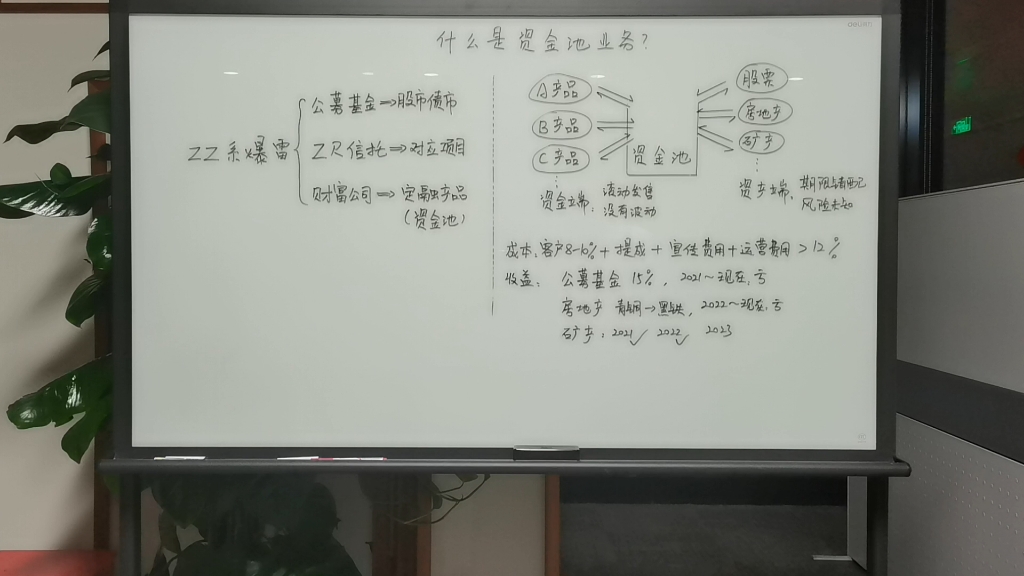 什么是资金池业务?
ZZ系爆雷
公募基金⇒股市债市
Z R信托⇒对应项目
财富公司⇒定融产品
(资金池)
A产品
B产品
C产品
⋮
资金池
股票
房地产
矿产
⋮
资金端: 滚动发售
没有波动
资产端、期限错配
风险未知
成本: 客户8-10%+提成+宣传费用+运营费用>12%
收益: 公募基金 15%, 2021~现在, 亏
房地产 青铜→黑铁, 2022~现在, 亏
矿产: 2021✓ 2022✓ 2023